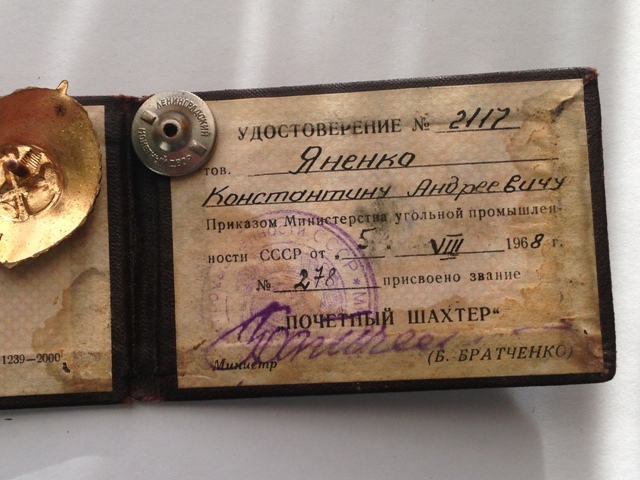 ЛЕНИНГРАДСКИЙ
МОНЕТНЫЙ ДВОР
УДОСТОВЕРЕНИЕ № 2117
тов. Яненко
Константину Андреевичу
Приказом Министерства угольной промышлен-
ности СССР от 5 VIII 1968 г.
№ 278 присвоено звание
„ПОЧЕТНЫЙ ШАХТЕР“
Министр (Б. БРАТЧЕНКО)
1239—2000